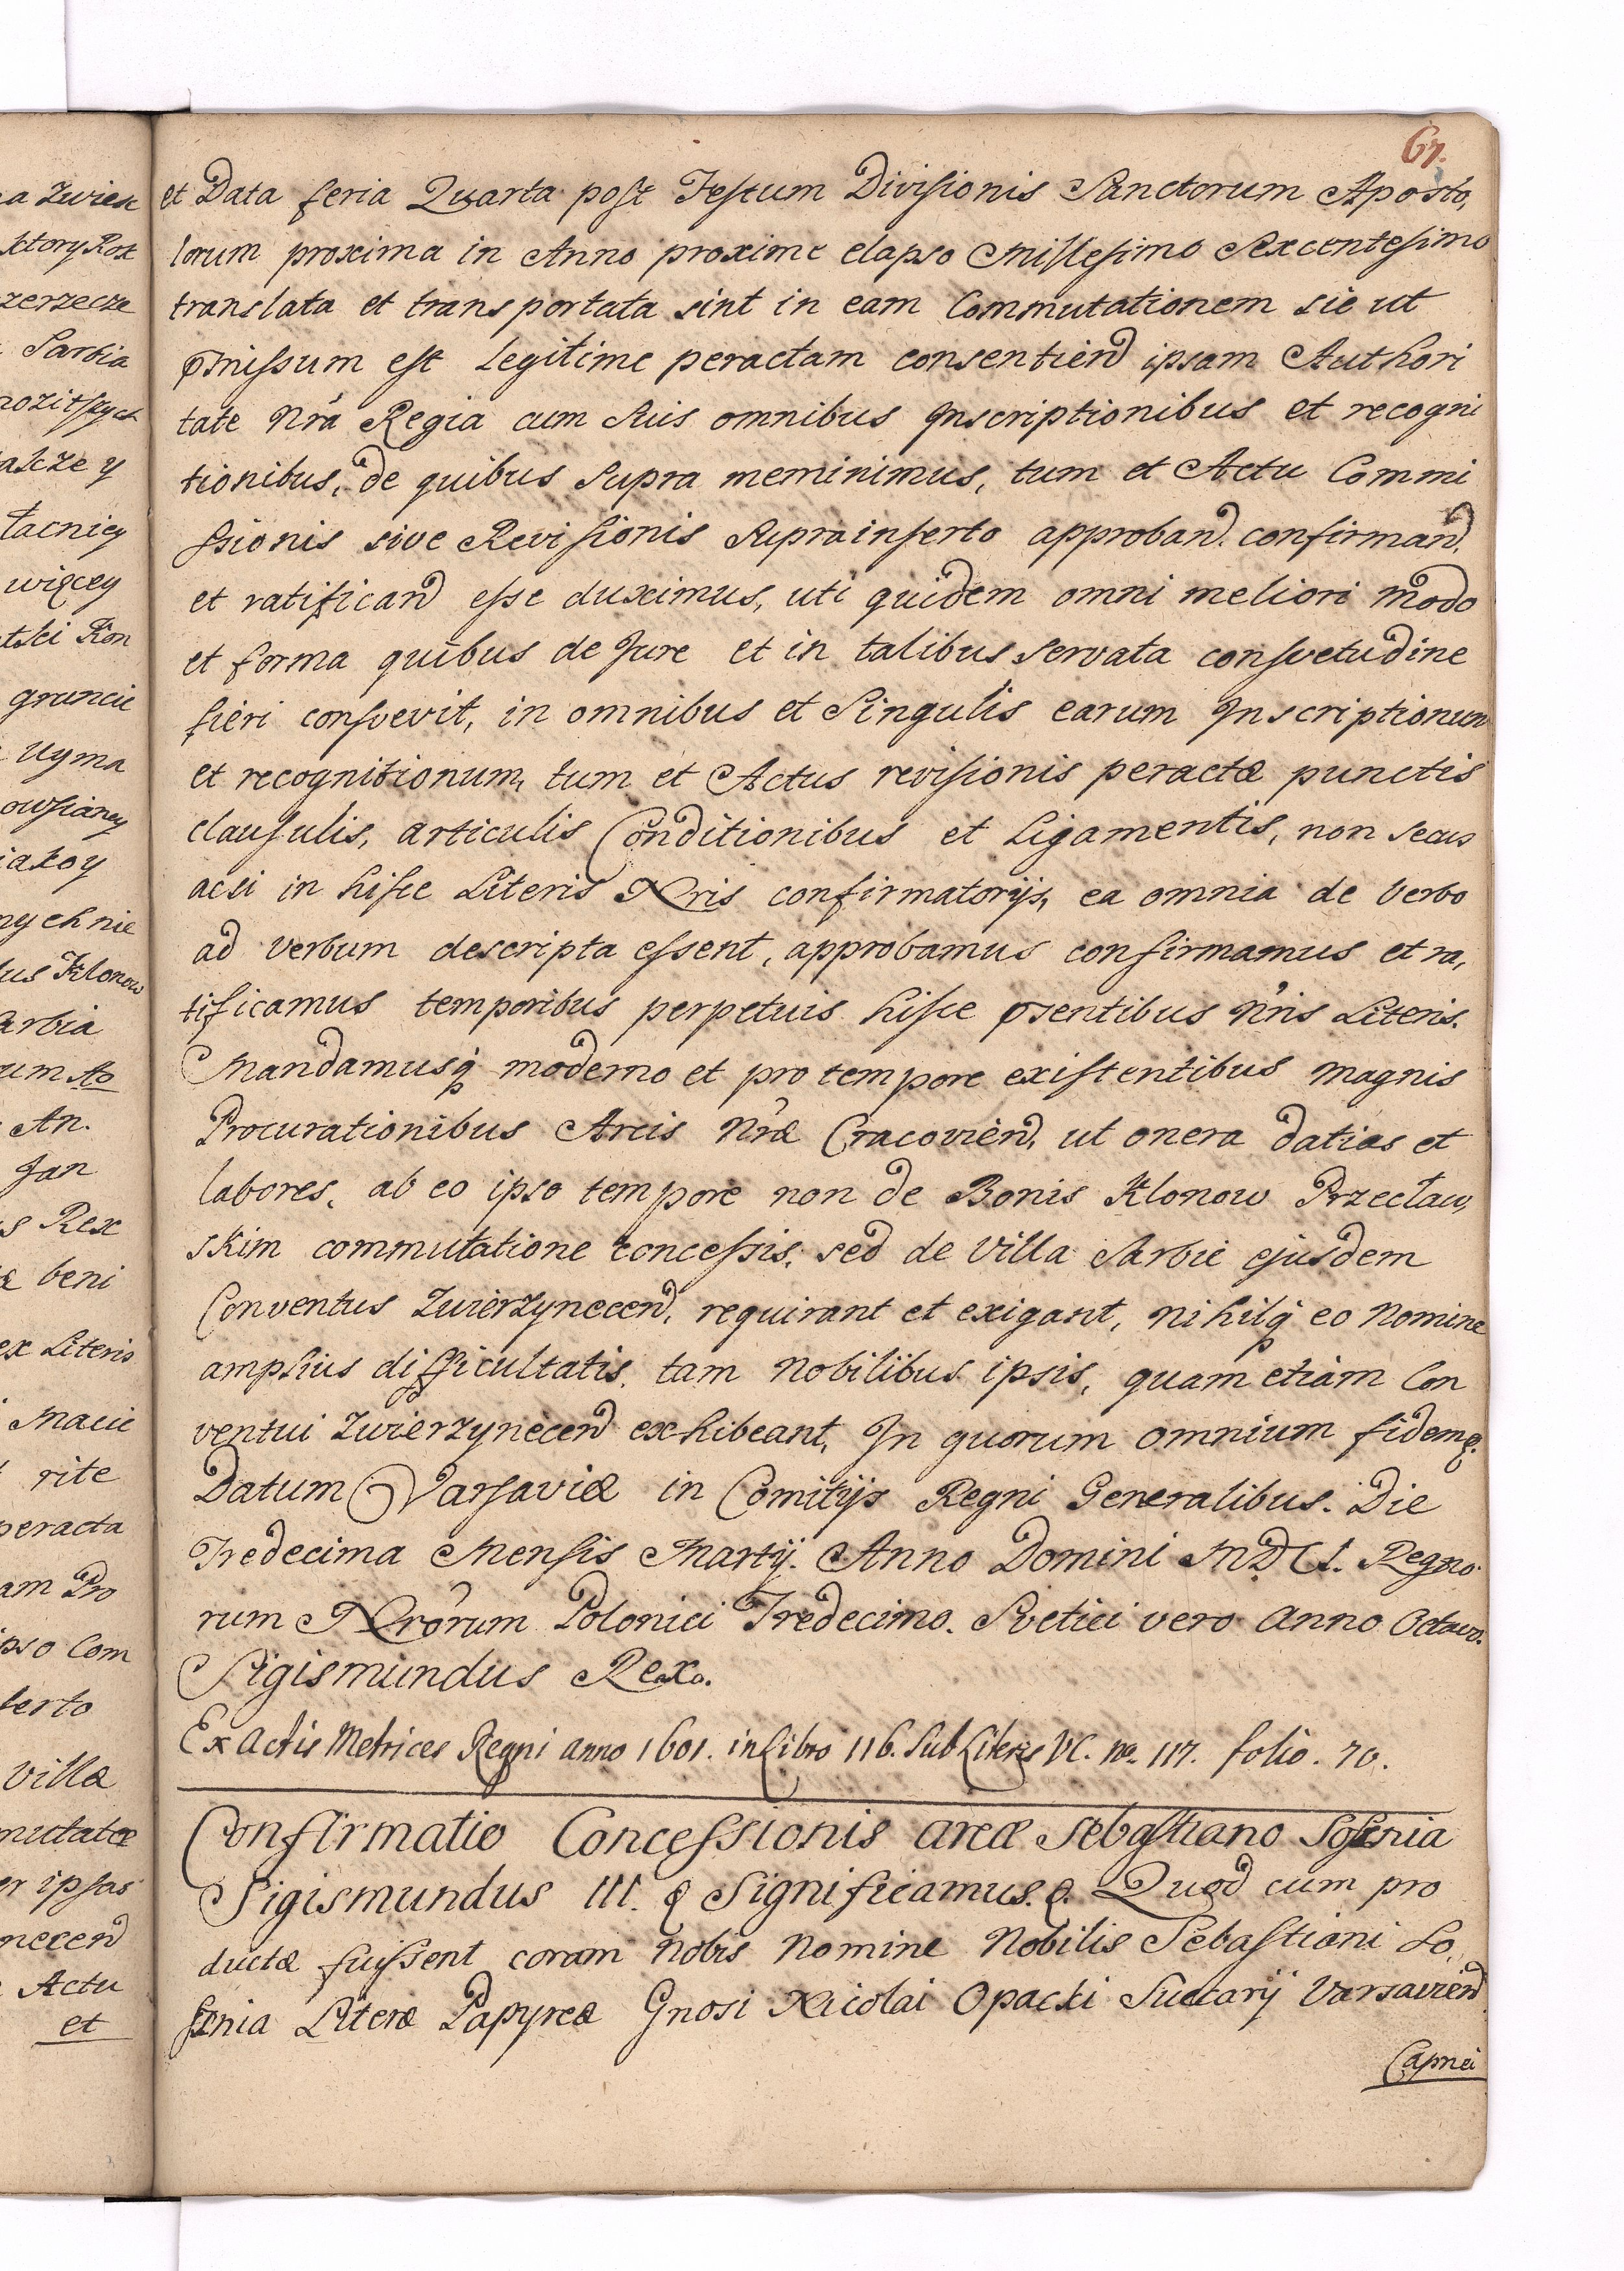 67.
et Data feria Quarta post Festum Divisionis Sanctorum Aposto,
lorum proxima in Anno proxime elapso Millesimo Sexcentesimo
translata et transportata sint in eam Commutationem sic ut
pmissum est Legitime peractam consentiend ipsam Authori
tate Nra Regia cum Suis omnibus Inscriptionibus et recogni
tionibus, de quibus Supra meminimus, tum et Actu Commi
ssionis sive Revisionis Suprainserto approband. confirmand.
et ratificand esse duximus, uti quidem omni meliori modo
et forma quibus de Jure et in talibus servata consvetudine
fieri consvevit, in omnibus et Singulis earum Inscriptionum
et recognitionum, tum et Actus revisionis peractæ punctis
clausulis, articulis Conditionibus et Ligamentis, non secus
acsi in hisce Literis Nris confirmatorijs, ea omnia de Verbo
ad verbum descripta essent, approbamus confirmamus et ra,
tificamus temporibus perpetuis hisce psentibus Nris Literis.
Mandamusq moderno et pro tempore existentibus magnis
Procurationibus Arcis Nræ Cracoviend, ut onera datias et
labores, ab eo ipso tempore non de Bonis Klonow Przecław,
skim commutatione concessis, sed de Villa Sarbie ejusdem
Conventus Zwierzynecend, requirant et exigant, nihilq eo Nomine
amplius difficultatis, tam Nobilibus ipsis, quam etiam Con
ventui Zwierzynecend exhibeant, In quorum omnium fidem &.
Datum Varsaviæ in Comitijs Regni Generalibus. Die
Tredecima Mensis Martij. Anno Domini MDCI. Regno
rum Nrorum Polonici Tredecimo. Svetici vero Anno Octavo.
Sigismundus Rex.
Ex Actis Metrices Regni anno 1601. in Libro 116. Sub Literis VC. no. 117. folio. 70.
Confirmatio Concessionis areæ Sebastiano Soseria
Sigismundus III. & Significamus. &. Quod cum pro
ductæ fuissent coram Nobis Nomine Nobilis Sebastiani So,
Literæ Papyreæ Gnosi Nicolai Opacki Succarij Varsaviend
Capnei